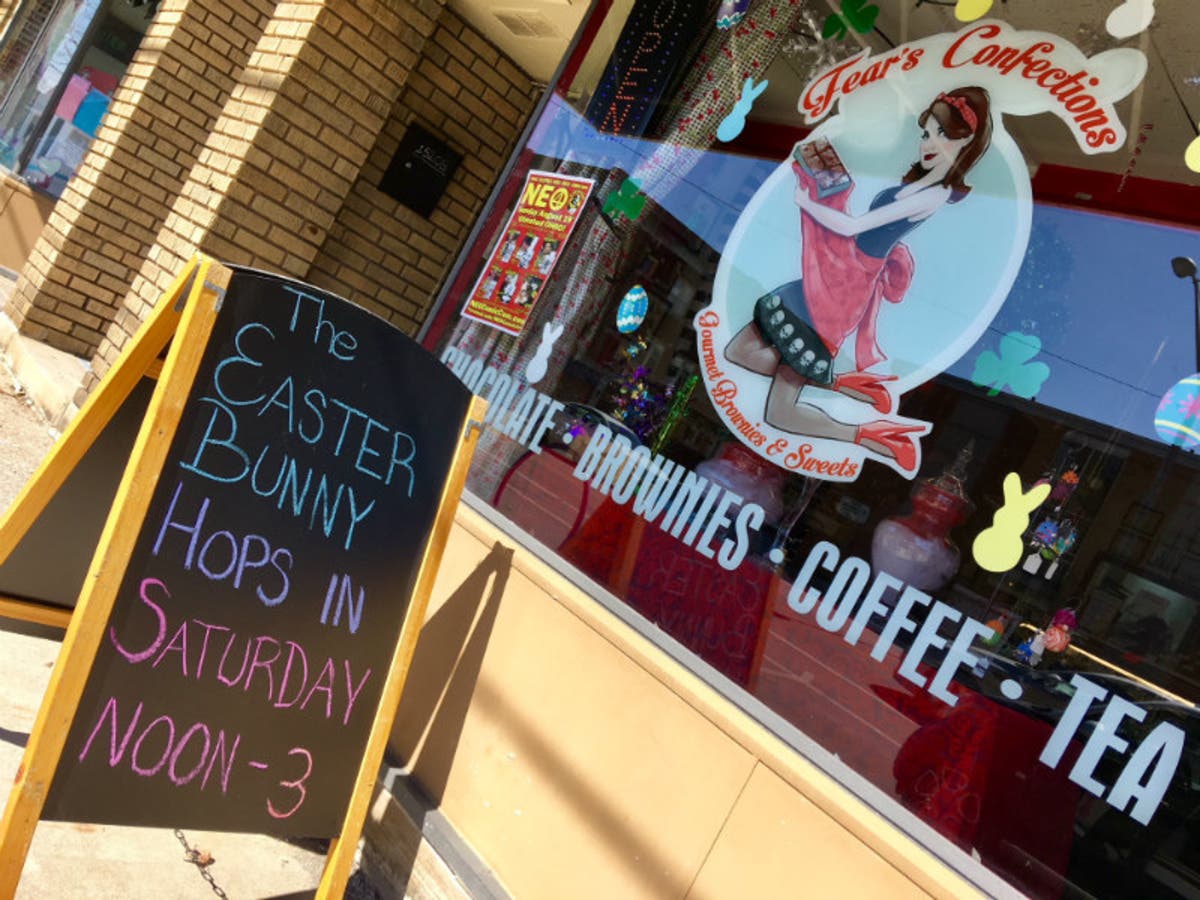 The
EASTER
BUNNY
HOPS IN
SATURDAY
NOON - 3
OPEN
NEO
Sunday August 19
Fear's Confections
Gourmet Brownies & Sweets
CHOCOLATE · BROWNIES · COFFEE · TEA